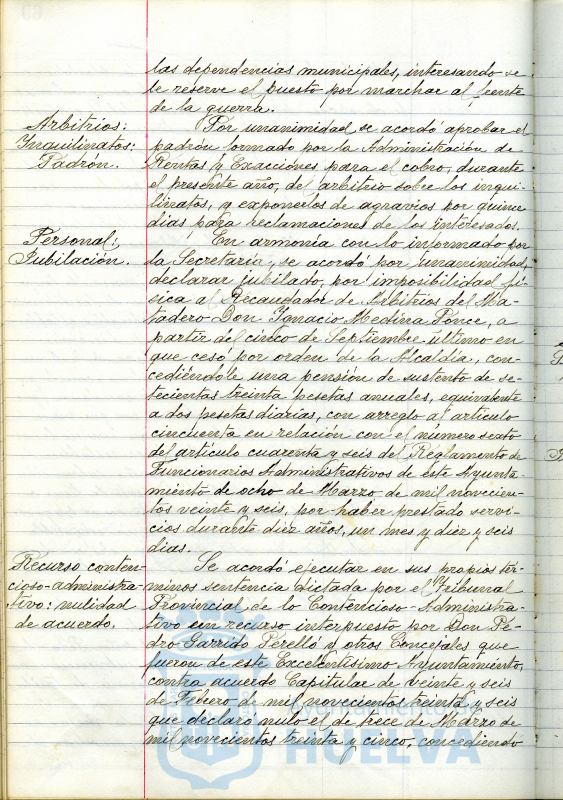 las dependencias municipales, interesando se
le reserve el puesto por marchar al frente
de la guerra.
Arbitrios:
Inquilinatos:
Padrón.
Por unanimidad se acordó aprobar el
padrón formado por la Administración de
Rentas y Exacciones para el cobro, durante
el presente año, del arbitrio sobre los inqui-
linatos, y exponerlos de agravios por quince
dias para reclamaciones de los interesados.
Personal:
Jubilación.
En armonia con lo informado por
la Secretaria, se acordó por unanimidad,
declarar jubilado, por imposibilidad fi-
sica al Recaudador de Arbitrios del Ma-
tadero Don Ignacio Medina Ponce, a
partir del cinco de Septiembre último en
que cesó por orden de la Alcaldia, con-
cediéndole una pensión de sustento de se-
tecientas treinta pesetas anuales, equivalente
a dos pesetas diarias, con arreglo al articulo
cincuenta en relación con el número sexto
del articulo cuarenta y seis del Reglamento de
Funcionarios Administrativos de este Ayunta-
miento de ocho de Marzo de mil novecien-
tos veinte y seis, por haber prestado servi-
cios durante diez años, un mes y diez y seis
dias.
Recurso conten-
cioso-administra-
tivo: nulidad
de acuerdo.
Se acordó ejecutar en sus propios tér-
minos sentencia dictada por el Tribunal
Provincial de lo Contencioso-Administra-
tivo en recurso interpuesto por Don Pe-
dro Garrido Perelló y otros Concejales que
fueron de este Excelentisimo Ayuntamiento,
contra acuerdo Capitular de veinte y seis
de Febrero de mil novecientos treinta y seis
que declaró nulo el de trece de Marzo de
mil novecientos treinta y cinco, concediendo
HUELVA